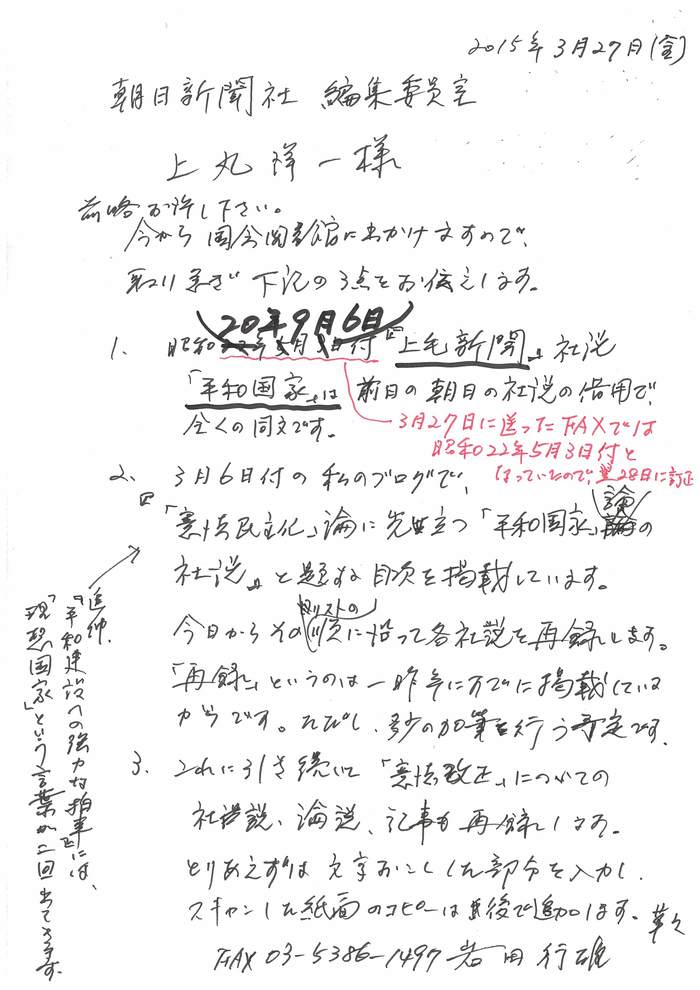 2015年3月27日(金)
朝日新聞社 編集委員室
上丸洋一様
前略お許し下さい。
今から国会図書館に出かけますので、
取り急ぎ下記の3点をお伝えします。
1. 昭和20年9月6日付『上毛新聞』社説
「平和国家」は前日の朝日の社説の借用で、
全くの同文です。
3月27日に送ったFAXでは
昭和22年5月3日付と
なっていたので、28日に訂正
2. 3月6日付の私のブログで、
『「憲法民主化」論に先立つ「平和国家」論の
社説』と題する目次を掲載しています。
今日からそのリストの順に沿って各社説を再録します。
「再録」というのは一昨年にすでに掲載している
からです。ただし、多少の加筆を行う予定です。
追伸.
『平和建設への強力な拍車』には、
「理想国家」という言葉が二回出てきます。
3. これに引き続いて「憲法改正」についての
社説、論説、記事も再録します。
とりあえずは文字おこしした部分を入力し、
スキャンした紙面のコピーは後で追加します。草々
FAX 03-5386-1497 岩田行雄